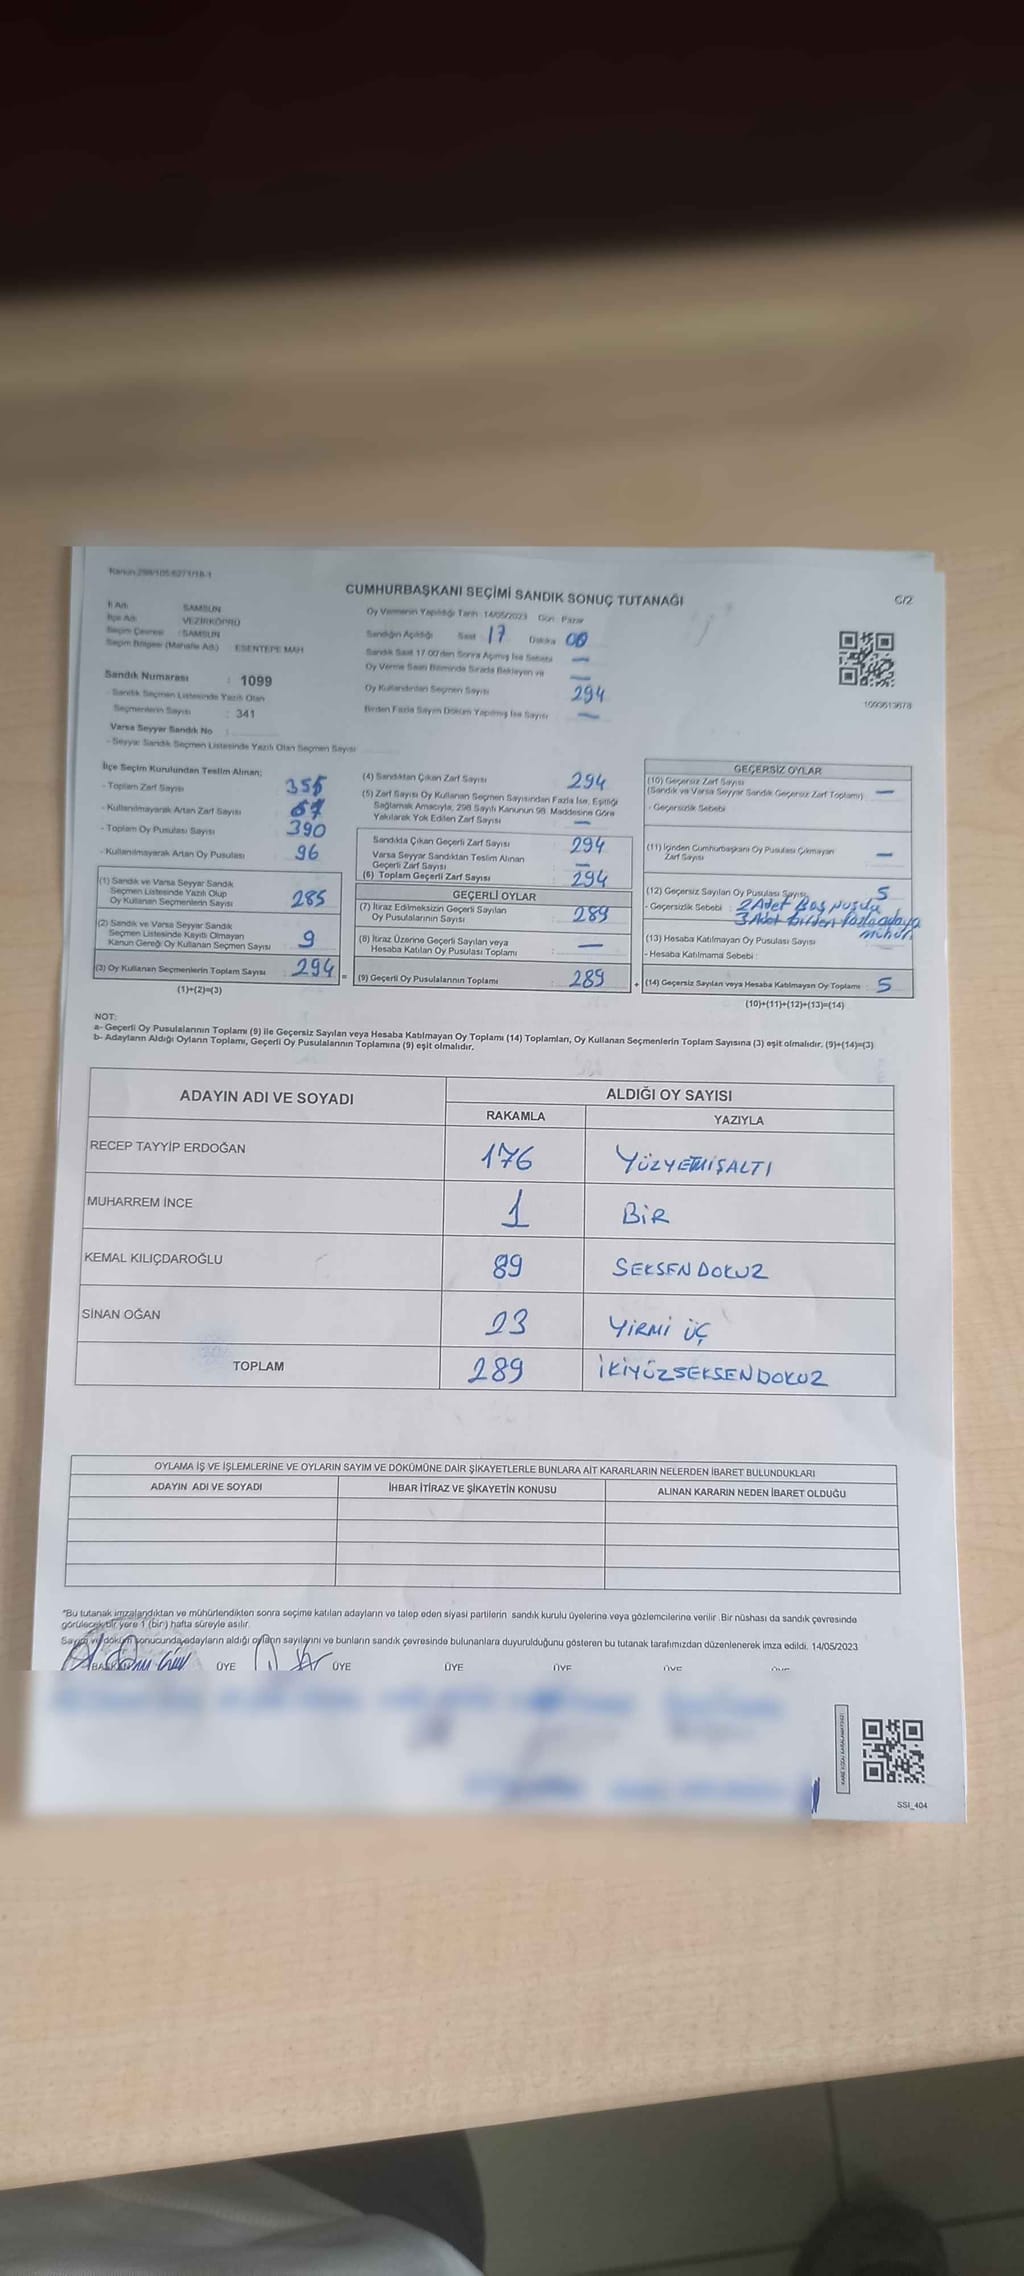 Kanun 298/105-6271/18-1
CUMHURBAŞKANI SEÇİMİ SANDIK SONUÇ TUTANAĞI
C/2
İl Adı SAMSUN
İlçe Adı VEZİRKÖPRÜ
Seçim Çevresi : SAMSUN
Seçim Bölgesi (Mahalle Adı) ESENTEPE MAH
Sandık Numarası : 1099
- Sandık Seçmen Listesinde Yazılı Olan
Seçmenlerin Sayısı : 341
Varsa Seyyar Sandık No :
- Seyyar Sandık Seçmen Listesinde Yazılı Olan Seçmen Sayısı
Oy Vermenin Yapıldığı Tarih 14/05/2023 Gün Pazar
Sandığın Açıldığı Saat 17 Dakika 00
Sandık Saat 17.00'den Sonra Açılmış İse Sebebi —
Oy Verme Saati Bitiminde Sırada Bekleyen ve —
Oy Kullandırılan Seçmen Sayısı 294
Birden Fazla Sayım Döküm Yapılmış İse Sayısı —
1093613678
İlçe Seçim Kurulundan Teslim Alınan;
- Toplam Zarf Sayısı 355
- Kullanılmayarak Artan Zarf Sayısı
- Toplam Oy Pusulası Sayısı 390
- Kullanılmayarak Artan Oy Pusulası 96
(1) Sandık ve Varsa Seyyar Sandık
Seçmen Listesinde Yazılı Olup
Oy Kullanan Seçmenlerin Sayısı 285
(2) Sandık ve Varsa Seyyar Sandık
Seçmen Listesinde Kayıtlı Olmayan
Kanun Gereği Oy Kullanan Seçmen Sayısı 9
(3) Oy Kullanan Seçmenlerin Toplam Sayısı 294 =
(1)+(2)=(3)
(4) Sandıktan Çıkan Zarf Sayısı 294
(5) Zarf Sayısı Oy Kullanan Seçmen Sayısından Fazla İse, Eşitliği
Sağlamak Amacıyla, 298 Sayılı Kanunun 98. Maddesine Göre
Yakılarak Yok Edilen Zarf Sayısı —
Sandıkta Çıkan Geçerli Zarf Sayısı 294
Varsa Seyyar Sandıktan Teslim Alınan
Geçerli Zarf Sayısı —
(6) Toplam Geçerli Zarf Sayısı 294
GEÇERLİ OYLAR
(7) İtiraz Edilmeksizin Geçerli Sayılan
Oy Pusulalarının Sayısı 289
(8) İtiraz Üzerine Geçerli Sayılan veya
Hesaba Katılan Oy Pusulası Toplamı —
(9) Geçerli Oy Pusulalarının Toplamı 289 +
GEÇERSİZ OYLAR
(10) Geçersiz Zarf Sayısı
(Sandık ve Varsa Seyyar Sandık Geçersiz Zarf Toplamı) —
- Geçersizlik Sebebi
(11) İçinden Cumhurbaşkanı Oy Pusulası Çıkmayan
Zarf Sayısı —
(12) Geçersiz Sayılan Oy Pusulası Sayısı 5
- Geçersizlik Sebebi : 2 Adet Boş pusula
3 Adet birden fazla adaya
mühür
(13) Hesaba Katılmayan Oy Pusulası Sayısı
- Hesaba Katılmama Sebebi :
(14) Geçersiz Sayılan veya Hesaba Katılmayan Oy Toplamı : 5
(10)+(11)+(12)+(13)=(14)
NOT:
a- Geçerli Oy Pusulalarının Toplamı (9) ile Geçersiz Sayılan veya Hesaba Katılmayan Oy Toplamı (14) Toplamları, Oy Kullanan Seçmenlerin Toplam Sayısına (3) eşit olmalıdır. (9)+(14)=(3)
b- Adayların Aldığı Oyların Toplamı, Geçerli Oy Pusulalarının Toplamına (9) eşit olmalıdır.
ADAYIN ADI VE SOYADI ALDIĞI OY SAYISI
RAKAMLA YAZIYLA
RECEP TAYYİP ERDOĞAN 176 YÜZYETMİŞALTI
MUHARREM İNCE 1 BİR
KEMAL KILIÇDAROĞLU 89 SEKSEN DOKUZ
SİNAN OĞAN 23 YİRMİ ÜÇ
TOPLAM 289 İKİYÜZSEKSENDOKUZ
OYLAMA İŞ VE İŞLEMLERİNE VE OYLARIN SAYIM VE DÖKÜMÜNE DAİR ŞİKAYETLERLE BUNLARA AİT KARARLARIN NELERDEN İBARET BULUNDUKLARI
ADAYIN ADI VE SOYADI İHBAR İTİRAZ VE ŞİKAYETİN KONUSU ALINAN KARARIN NEDEN İBARET OLDUĞU
*Bu tutanak imzalandıktan ve mühürlendikten sonra seçime katılan adayların ve talep eden siyasi partilerin sandık kurulu üyelerine veya gözlemcilerine verilir. Bir nüshası da sandık çevresinde
görülecek bir yere 1 (bir) hafta süreyle asılır.
Sayım ve döküm sonucunda, adayların aldığı oyların sayılarını ve bunların sandık çevresinde bulunanlara duyurulduğunu gösteren bu tutanak tarafımızdan düzenlenerek imza edildi. 14/05/2023
BAŞKAN ÜYE ÜYE ÜYE ÜYE ÜYE
SSI_404